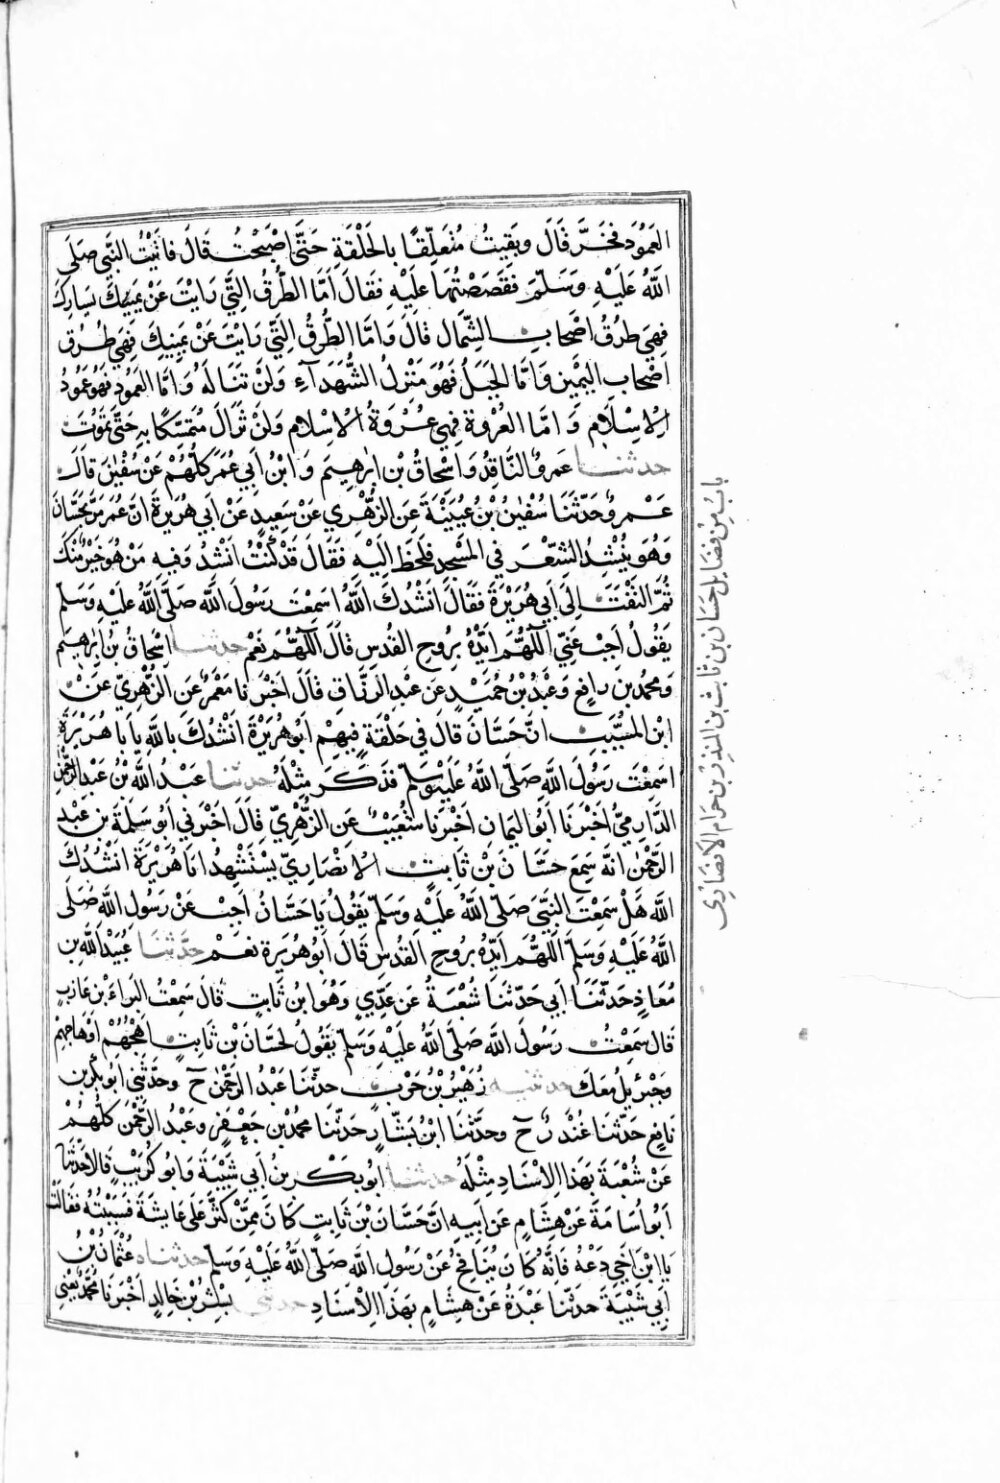 العَمُودَ فَخَرَّ قَالَ وبَقِيتُ مُتَعَلِّقًا بِالحَلْقَةِ حَتَّى اَصْبَحْتُ قَالَ فَاتَيْتُ النَّبِيَّ صَلَّى
اللَّهُ عَلَيْهِ وَسَلَّمَ فَقَصَصْتُهَا عَلَيْهِ فَقَالَ اَمَّا الطُّرُقُ الَّتِي رَايْتَ عَنْ يَسَارِكَ
فَهِيَ طُرُقُ اَصْحَابِ الشِّمَالِ قَالَ وَامَّا الطُّرُقُ الَّتِي رَايْتَ عَنْ يَمِينِكَ فَهِيَ طُرُقُ
اَصْحَابِ اليَمِينِ وَامَّا الجَبَلُ فَهُوَ مَنْزِلُ الشُّهَدَآءِ وَلَنْ تَنَالَهُ وَامَّا العَمُودُ فَهُوَ عَمُودُ
الْاِسْلَامِ وَامَّا العُرْوَةُ فَهِيَ عُرْوَةُ الْاِسْلَامِ وَلَنْ تَزَالَ مُتَمَسِّكًا بِهِ حَتَّى تَمُوتَ
حدثنا عَمرٌو النَّاقِدُ وَاِسْحَاقُ بْنُ اِبْرٰهِيمَ وَابْنُ اَبِي عُمَرَ كُلُّهُمْ عَنْ سُفْيٰنَ قَالَ
عَمْرٌو حَدَّثَنَا سُفْيٰنُ بْنُ عُيَيْنَةَ عَنِ الزُّهْرِيِّ عَنْ سَعِيدٍ عَنْ اَبِي هُرَيْرَةَ انَّ عُمَرَ مَرَّ بِحَسَّانَ
وَهُوَ يُنْشِدُ الشِّعْرَ فِي المَسْجِدِ فَلَحَظَ اِلَيْهِ فَقَالَ قَدْ كُنْتُ اُنْشِدُ وَفِيهِ مَنْ هُوَ خَيْرٌ مِنْكَ
ثُمَّ التَفَتَ اِلَى اَبِي هُرَيْرَةَ فَقَالَ اَنْشُدُكَ اللَّهَ اَسَمِعْتَ رَسُولَ اللَّهِ صَلَّى اللَّهُ عَلَيْهِ وَسَلَّمَ
يَقُولُ اَجِبْ عَنِّي اللَّهُمَّ اَيِّدْهُ بِرُوحِ القُدُسِ قَالَ اللَّهُمَّ نَعَمْ حدثنا اِسْحَاقُ بْنُ اِبْرٰهِيمَ
وَمُحَمَّدُ بْنُ رَافِعٍ وَعَبْدُ بْنُ حُمَيْدٍ عَنْ عَبْدِ الرَّزَّاقِ قَالَ اَخْبَرَنَا مَعْمَرٌ عَنِ الزُّهْرِيِّ عَنْ
ابْنِ المُسَيَّبِ انَّ حَسَّانَ قَالَ فِي حَلْقَةٍ فِيهِمْ اَبُو هُرَيْرَةَ اَنْشُدُكَ بِاللَّهِ يَا بَا هُرَيْرَةَ
اَسَمِعْتَ رَسُولَ اللَّهِ صَلَّى اللَّهُ عَلَيْهِ وَسَلَّمَ فَذَكَرَ مِثْلَهُ حدثنا عَبْدُ اللَّهِ بْنُ عَبْدِ الرَّحْمٰنِ
الدَّارِمِيُّ اَخْبَرَنَا اَبُو اليَمَانِ اَخْبَرَنَا شُعَيْبٌ عَنِ الزُّهْرِيِّ قَالَ اَخْبَرَنِي اَبُو سَلَمَةَ بْنُ عَبْدِ
الرَّحْمٰنِ انَّهُ سَمِعَ حَسَّانَ بْنَ ثَابِتٍ الْاَنْصَارِيَّ يَسْتَشْهِدُ اَبَا هُرَيْرَةَ اَنْشُدُكَ
اللَّهَ هَلْ سَمِعْتَ النَّبِيَّ صَلَّى اللَّهُ عَلَيْهِ وَسَلَّمَ يَقُولُ يَا حَسَّانُ اَجِبْ عَنْ رَسُولِ اللَّهِ صَلَّى
اللَّهُ عَلَيْهِ وَسَلَّمَ اللَّهُمَّ اَيِّدْهُ بِرُوحِ القُدُسِ قَالَ اَبُو هُرَيْرَةَ نَعَمْ حَدَّثَنَا عُبَيْدُ اللَّهِ بْنُ
مُعَاذٍ حَدَّثَنَا اَبِي حَدَّثَنَا شُعْبَةُ عَنْ عَدِيٍّ وَهُوَ ابْنُ ثَابِتٍ قَالَ سَمِعْتُ البَرَاءَ بْنَ عَازِبٍ
قَالَ سَمِعْتُ رَسُولَ اللَّهِ صَلَّى اللَّهُ عَلَيْهِ وَسَلَّمَ يَقُولُ لِحَسَّانَ بْنِ ثَابِتٍ اهْجُهُمْ اَوْ هَاجِهِمْ
وَجَبْرَئِيلُ مَعَكَ حدثنيه زُهَيْرُ بْنُ حَرْبٍ حَدَّثَنَا عَبْدُ الرَّحْمٰنِ ح وحَدَّثَنِي ابُو بَكْرِ بْنُ
نَافِعٍ حَدَّثَنَا غُنْدَرٌ ح وحَدَّثَنَا ابْنُ بَشَّارٍ حَدَّثَنَا مُحَمَّدُ بْنُ جَعْفَرٍ وَعَبْدُ الرَّحْمٰنِ كُلُّهُمْ
عَنْ شُعْبَةَ بِهَذَا الْاِسْنَادِ مِثْلَهُ حدثنا ابُو بَكْرِ بْنُ اَبِي شَيْبَةَ وَابُو كُرَيْبٍ قَالَا حَدَّثَنَا
اَبُو اُسَامَةَ عَنْ هِشَامٍ عَنْ اَبِيهِ انَّ حَسَّانَ بْنَ ثَابِتٍ كَانَ مِمَّنْ كَثَّرَ عَلَى عَايِشَةَ فَسَبَبْتُهُ فَقَالَتْ
يَا ابْنَ اُخْتِي دَعْهُ فَاِنَّهُ كَانَ يُنَافِحُ عَنْ رَسُولِ اللَّهِ صَلَّى اللَّهُ عَلَيْهِ وَسَلَّمَ حدثناه عُثْمَانُ بْنُ
اَبِي شَيْبَةَ حَدَّثَنَا عَبْدَةُ عَنْ هِشَامٍ بِهَذَا الْاِسْنَادِ حدثني بِشْرُ بْنُ خَالِدٍ اَخْبَرَنَا مُحَمَّدٌ يَعْنِي
بابٌ مِنْ فضَايل حَسَان بن ثابت بن المنذر بن حَرَام الْاَنصَارِى